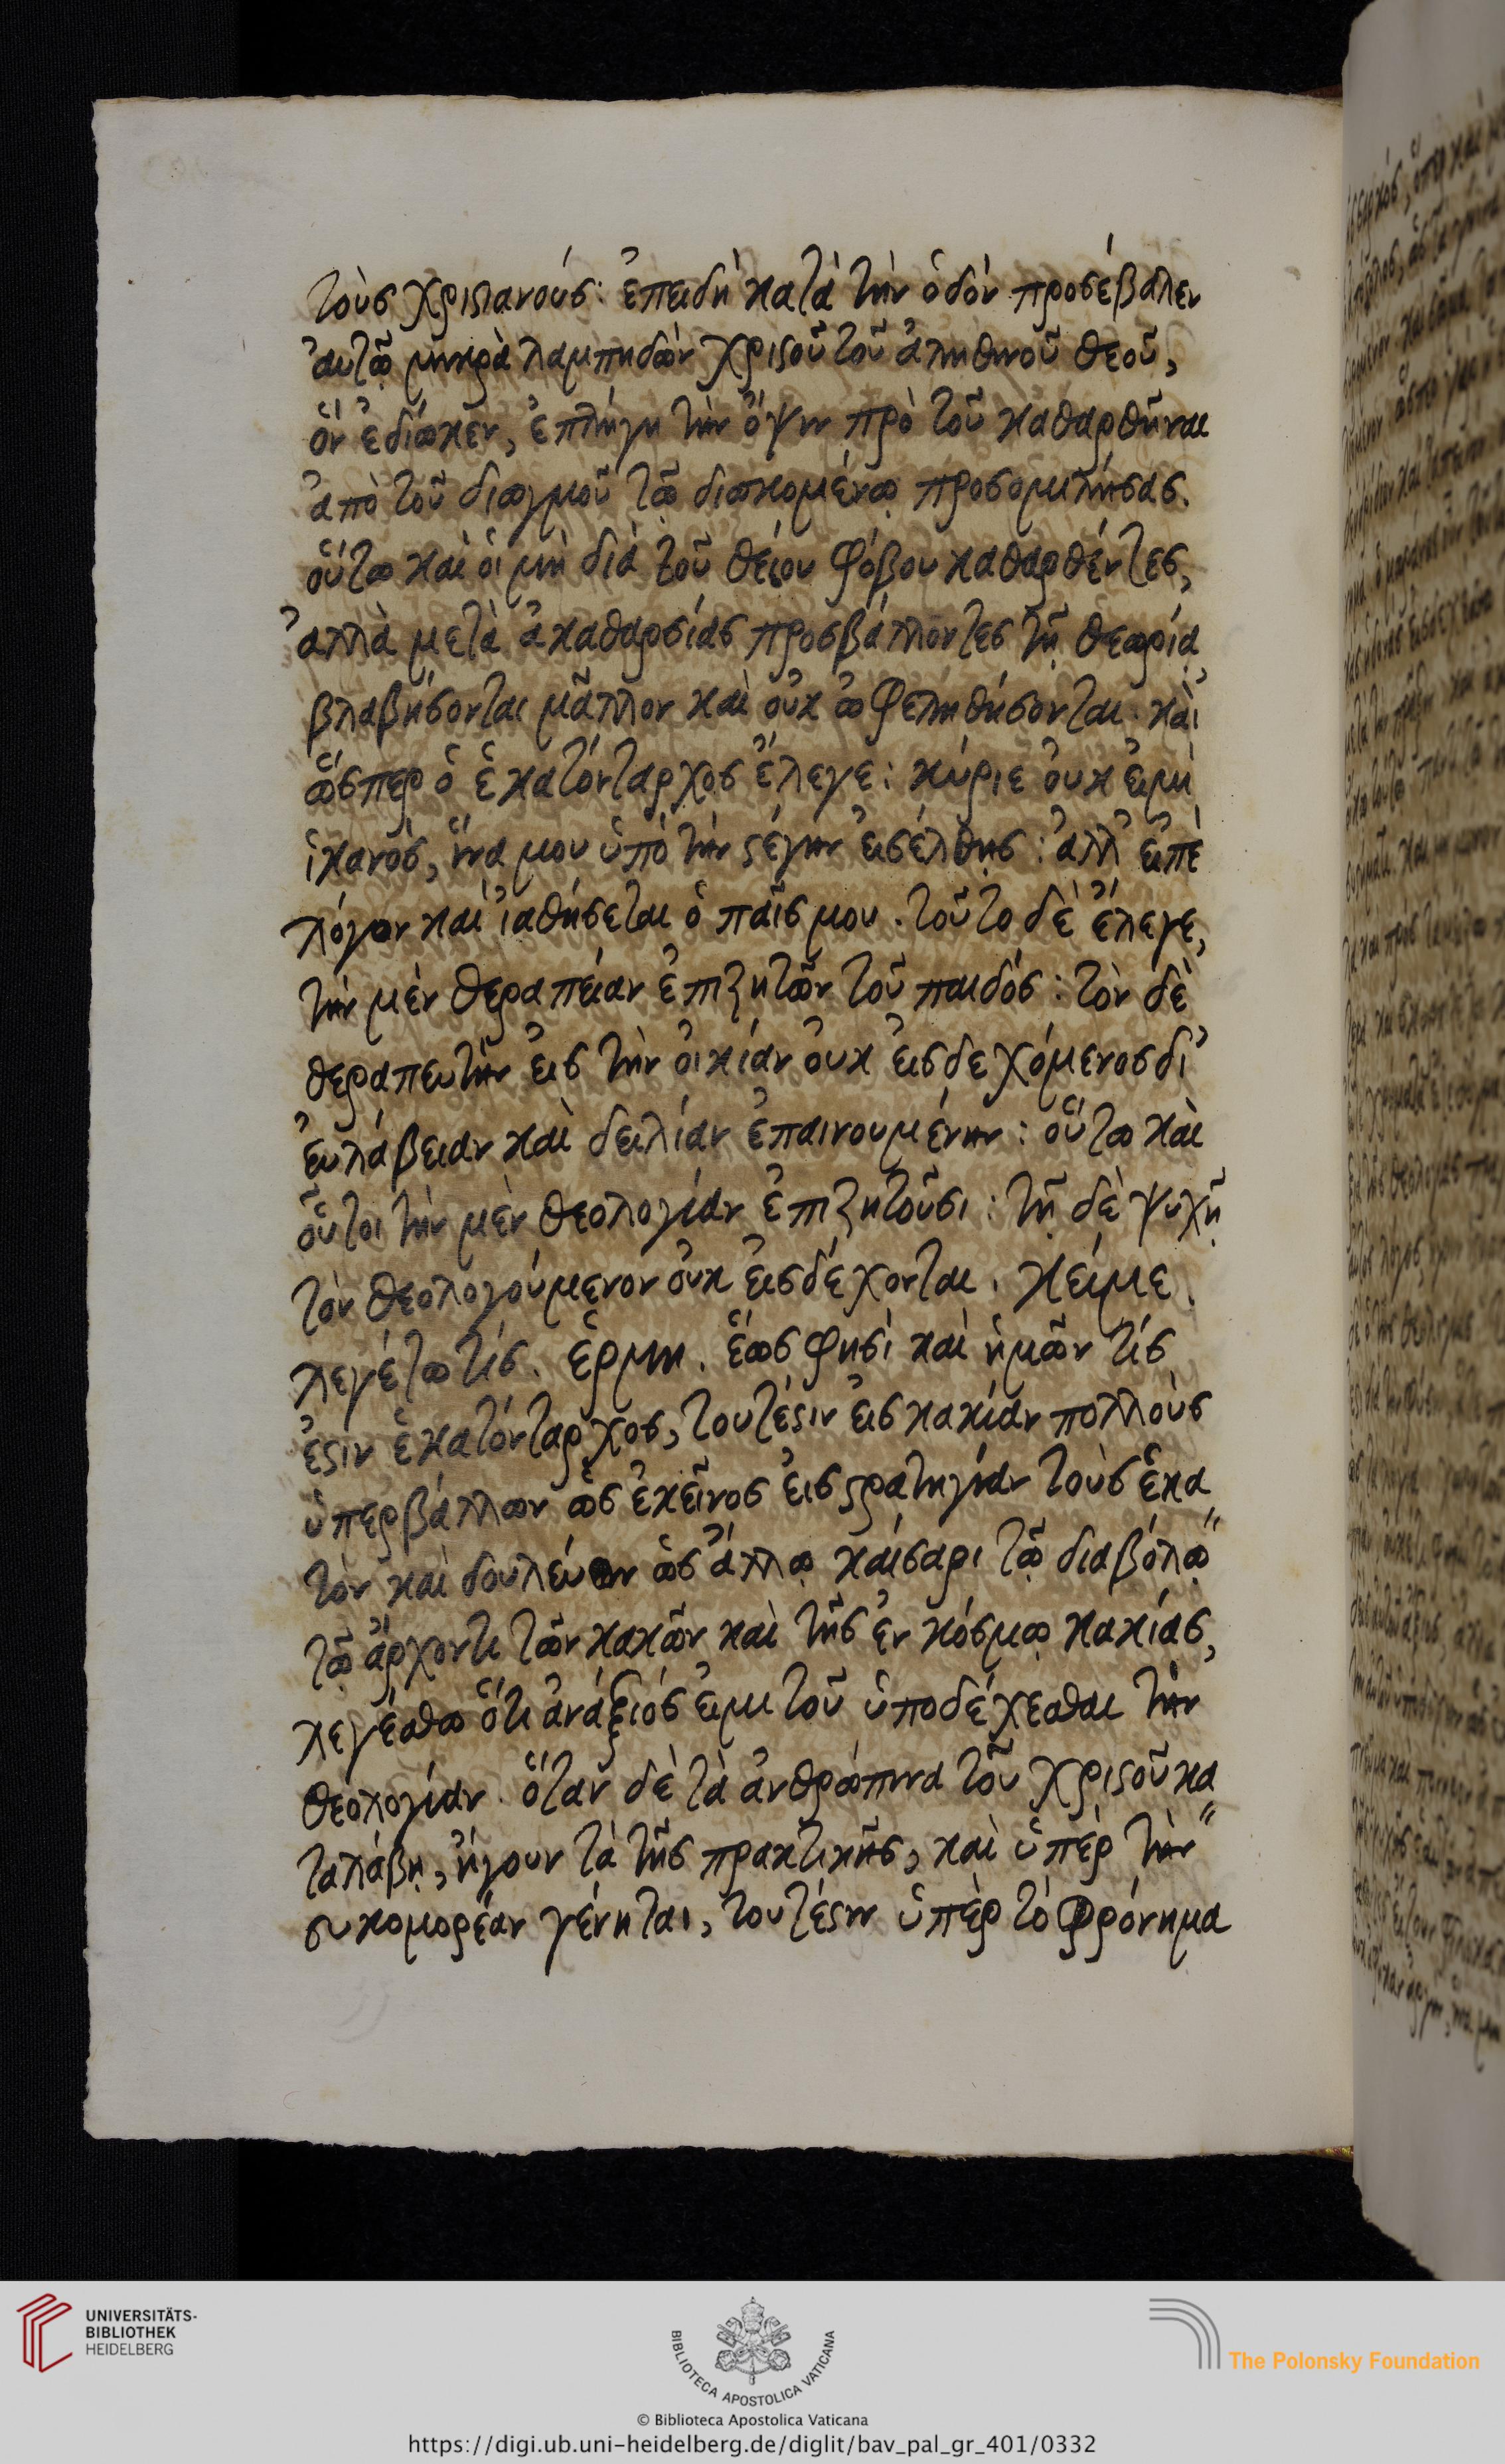 τοὺς χριστιανούς: ἐπειδὴ κατὰ τὴν ὁδὸν προσέβαλεν
αὐτῶ μικρὰ λαμπηδὼν χριστοῦ τοῦ ἀληθινοῦ θεοῦ,
ὃν ἐδίωκεν, ἐπλήγη τὴν ὄψιν πρὸ τοῦ καθαρθῆναι
ἀπὸ τοῦ διωγμοῦ τῶ διωκομένω προσομιλήσας.
οὕτω καὶ οἱ μὴ διὰ τοῦ θείου φόβου καθαρθέντες,
ἀλλὰ μετὰ ἀκαθαρσίας προσβάλλοντες τῇ θεωρίᾳ
βλαβήσονται μᾶλλον καὶ οὐκ ὠφεληθήσονται. καὶ
ὥσπερ ὁ ἑκατόνταρχος ἔλεγε: κύριε οὐκ εἰμὶ
ἱκανὸς, ἵνα μου ὑπὸ τὴν στέγην εἰσέλθῃς: ἀλλ' εἰπὲ
λόγον καὶ ἰαθήσεται ὁ παῖς μου. τοῦτο δὲ ἔλεγε,
τὴν μὲν θεραπείαν ἐπιζητῶν τοῦ παιδός: τὸν δὲ
θεραπευτὴν εἰς τὴν οἰκίαν οὐκ εἰσδεχόμενος δι'
εὐλάβειαν καὶ δειλίαν ἐπαινουμένην: οὕτω καὶ
οὗτοι τὴν μὲν θεολογίαν ἐπιζητοῦσι: τῇ δὲ ψυχῇ
τὸν θεολογούμενον οὐκ εἰσδέχονται. κείμε.
λεγέτω τίς. ἑρμη. ἕως φησὶ καὶ ἡμῶν τίς
ἐστὶν ἑκατόνταρχος, τουτέστιν εἰς κακίαν πολλοὺς
ὑπερβάλλων ὡς ἐκεῖνος εἰς στρατηγίαν τοὺς ἑκα
τὸν καὶ δουλεύων ὡς ἄλλῳ καίσαρι τῷ διαβόλῳ
τῷ ἄρχοντι τῶν κακῶν καὶ τῆς ἐν κόσμῳ κακίας,
λεγέσθω ὅτι ἀνάξιός εἰμι τοῦ ὑποδέχεσθαι τὴν
θεολογίαν. ὅταν δὲ τὰ ἀνθρώπινα τοῦ χριστοῦ κα
ταλάβῃ, ἤγουν τὰ τῆς πρακτικῆς, καὶ ὑπὲρ τὴν
συκομορέαν γένηται, τουτέστιν ὑπὲρ τὸ φρόνημα
UNIVERSITÄTS-
BIBLIOTHEK
HEIDELBERG
BIBLIOTECA APOSTOLICA VATICANA
The Polonsky Foundation
© Biblioteca Apostolica Vaticana
https://digi.ub.uni-heidelberg.de/diglit/bav_pal_gr_401/0332